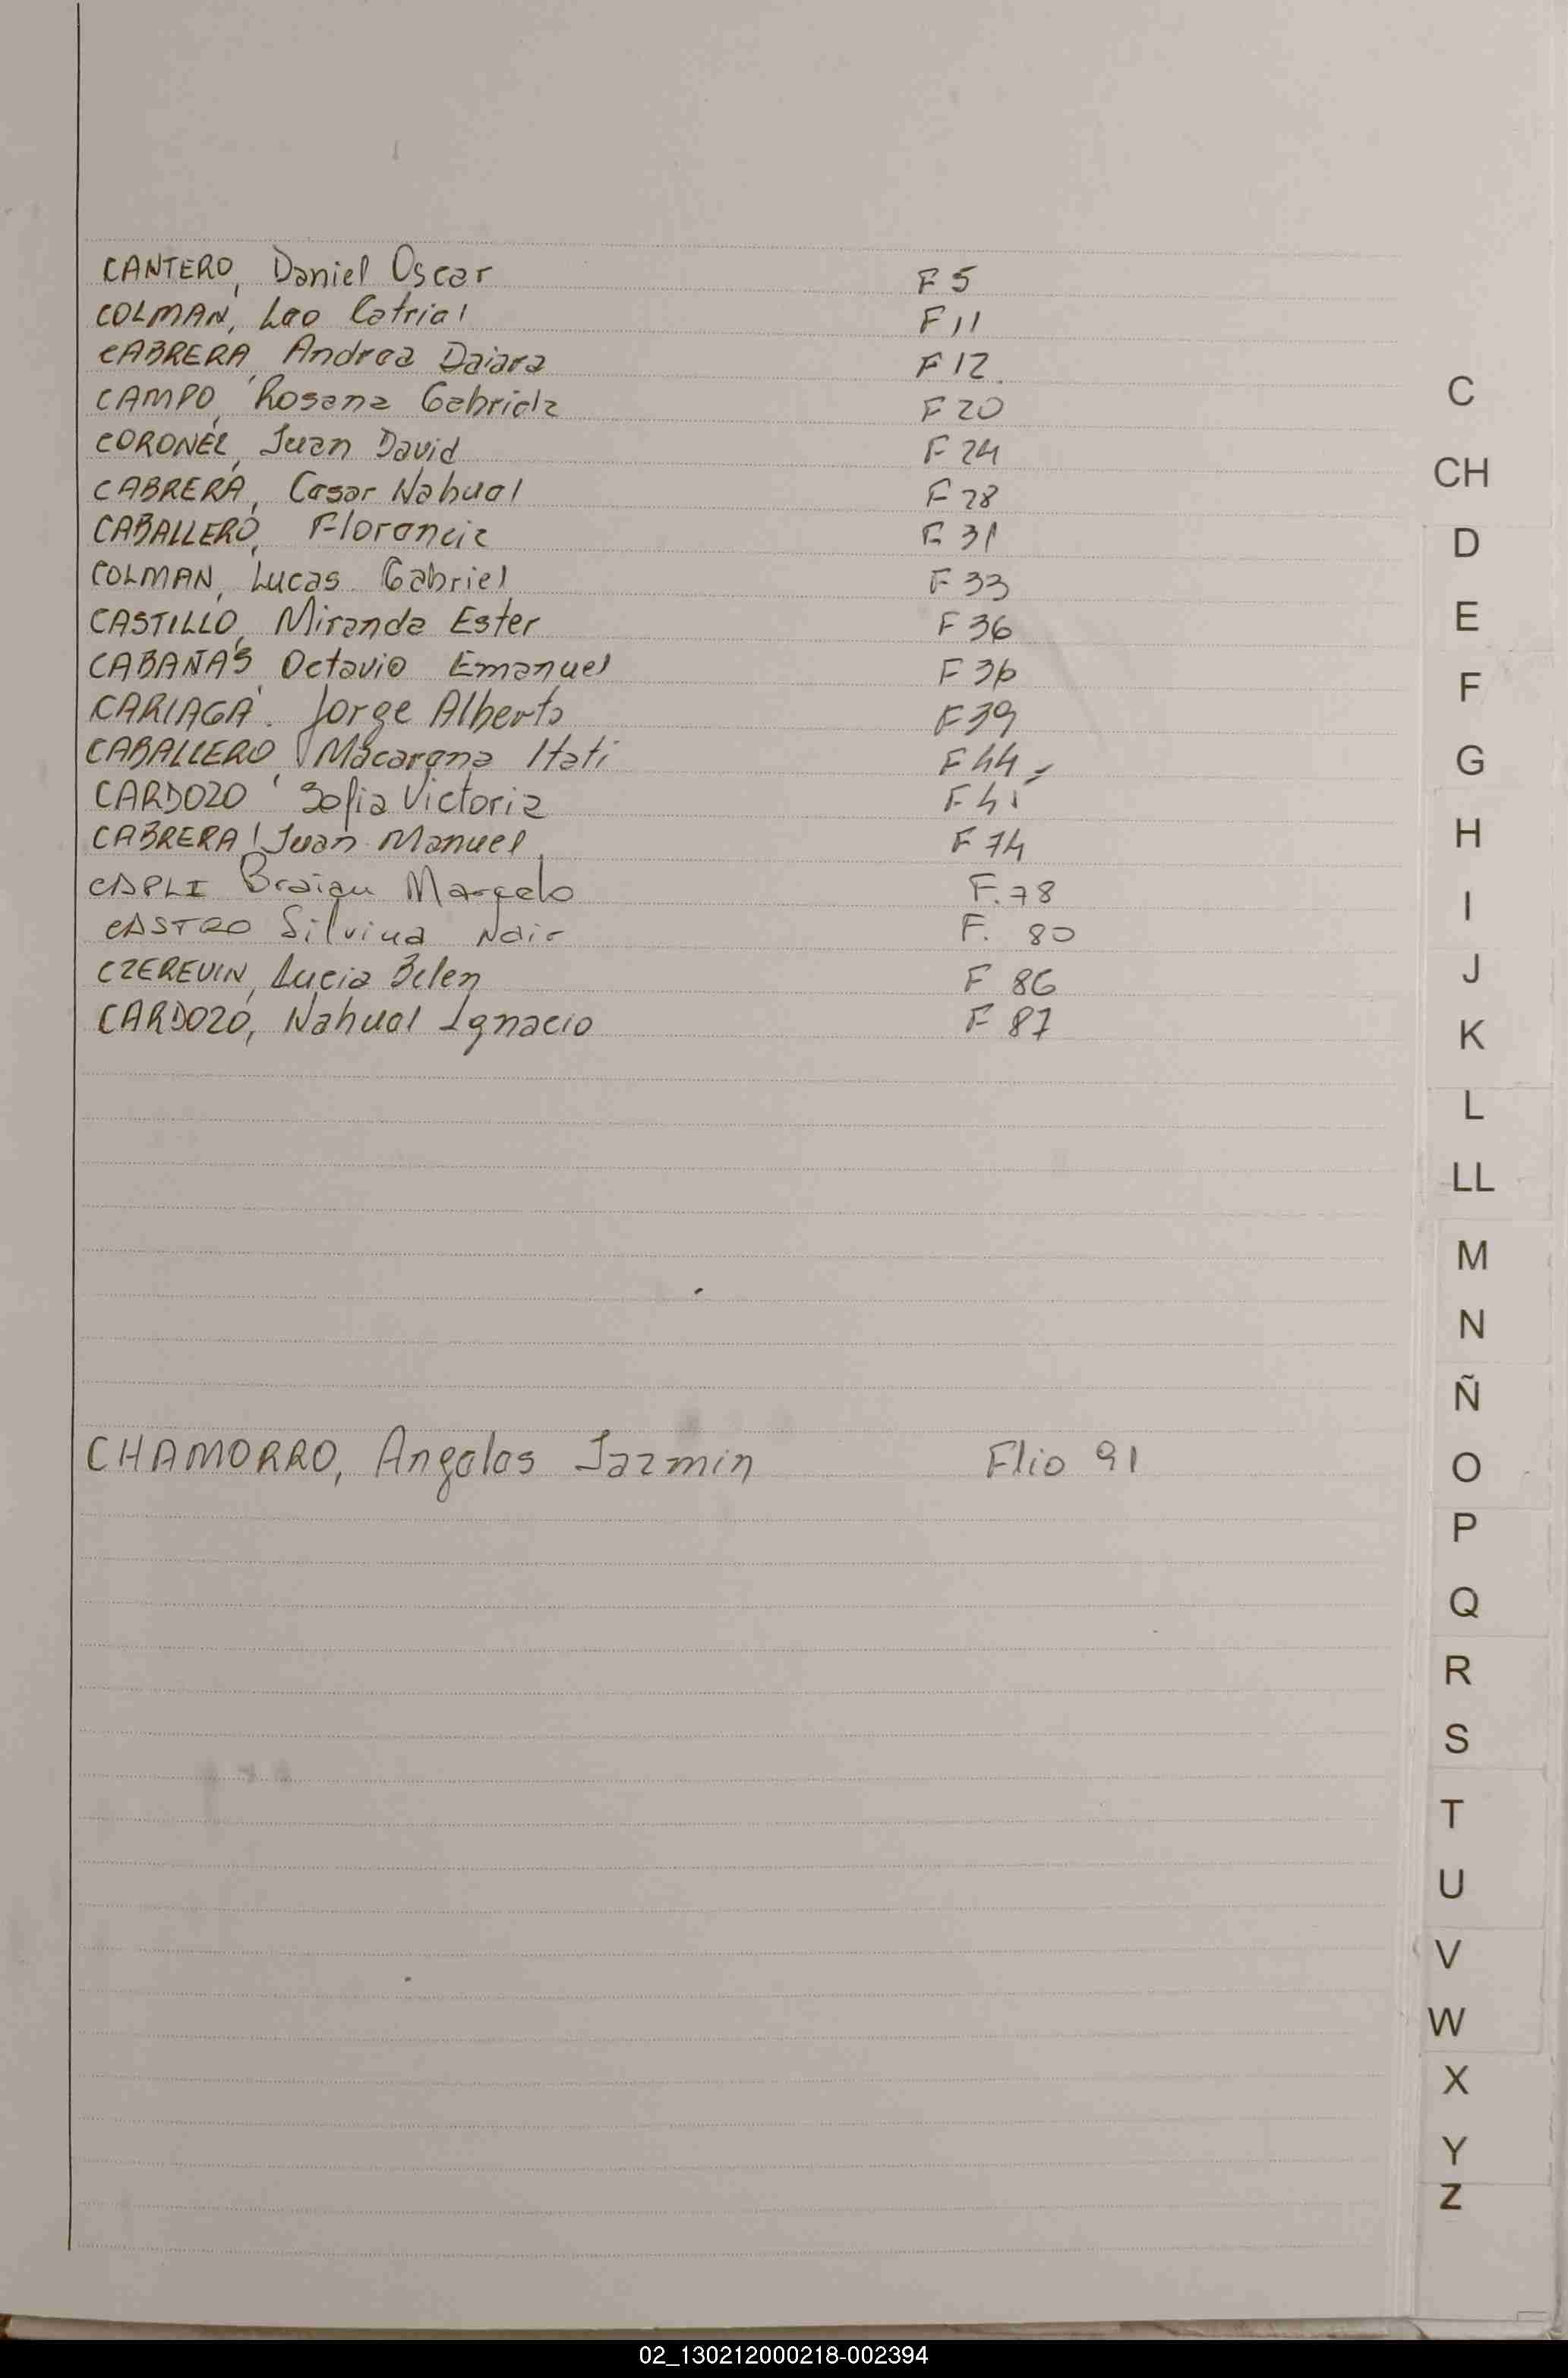 CANTERO, Daniel Oscar F 5
COLMAN, Leo Catriel F 11
CABRERA, Andrea Daiara F 12
CAMPO, Rosana Gabriela F 20
CORONEL, Juan David F 24
CABRERA, Cesar Nahuel F 28
CABALLERO, Florencia F 31
COLMAN, Lucas Gabriel F 33
CASTILLO, Miranda Ester F 36
CABAÑAS, Octavio Emanuel F 36
CARIAGA, Jorge Alberto F 39
CABALLERO, Macarena Itati F 44
CARDOZO, Sofia Victoria F 45
CABRERA, Juan Manuel F 74
Braian Marcelo F. 78
CASTRO Silvina Nair F. 80
CZEREVIN, Lucia Belen F 86
CARDOZO, Nahuel Ignacio F 87
CHAMORRO, Angeles Jazmin Flio 91
C
CH
D
E
F
G
H
I
J
K
L
LL
M
N
Ñ
O
P
Q
R
S
T
U
V
W
X
Y
Z
02_130212000218-002394